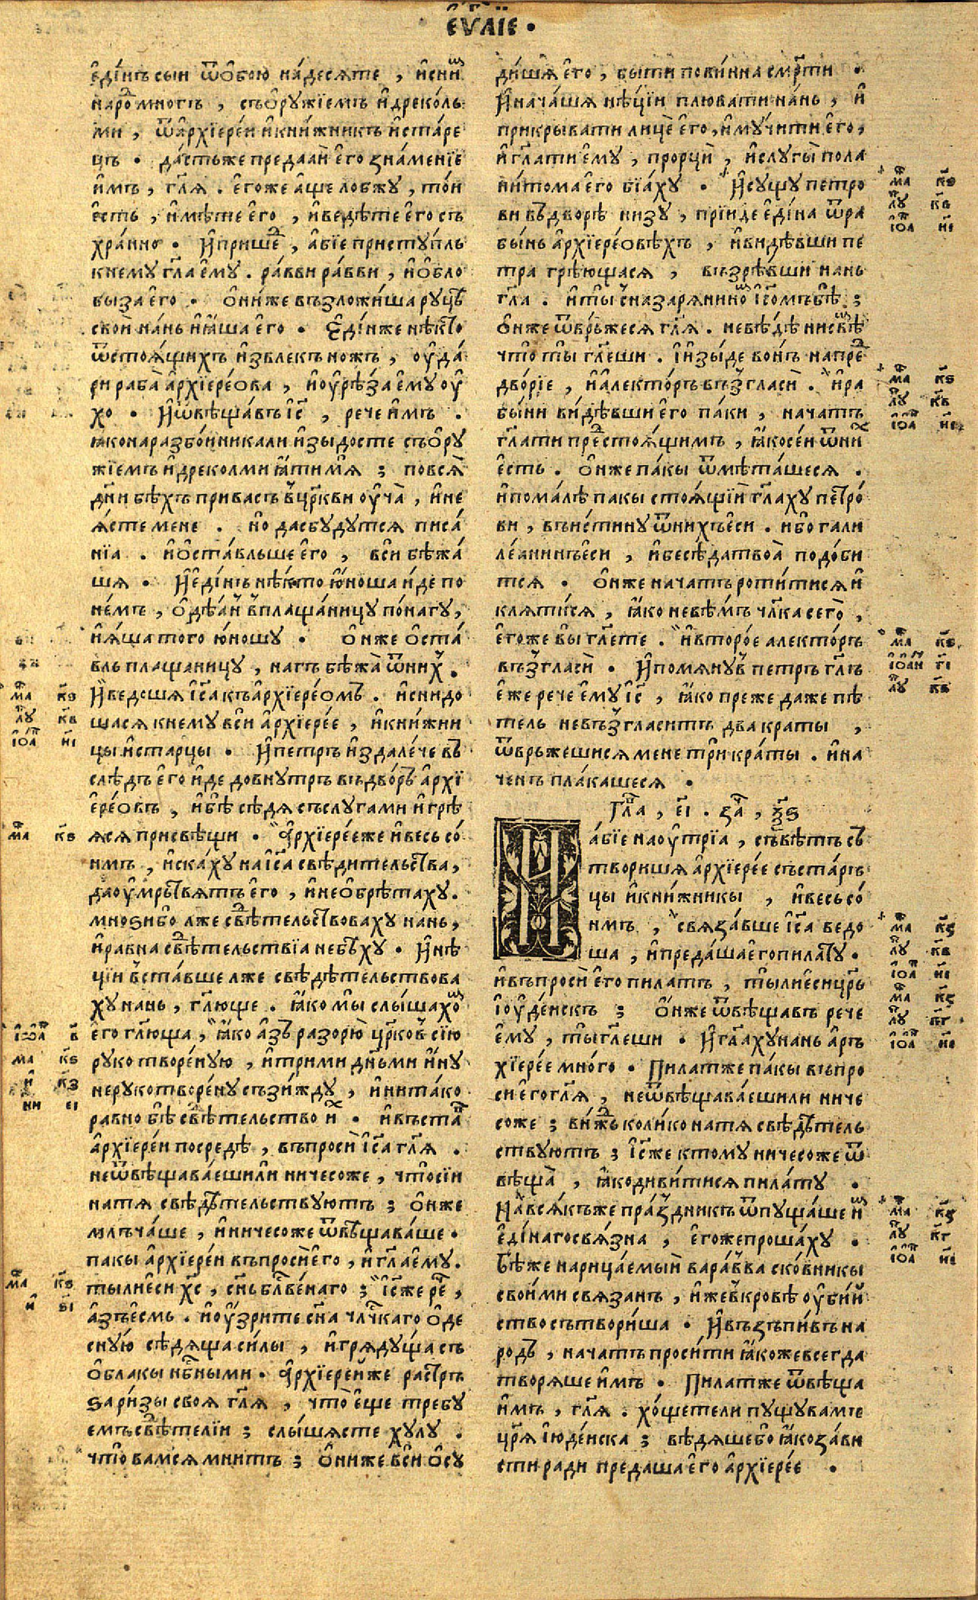 єѵⷢ҇лїе •
єди́нъ сыи ѿ ѻ҆бою на́десѧте , и҆ сниⷨ
наро́ⷣ мно́гъ , съ ѻ҆рꙋжїемъ и҆ дреколь
ми , ѿ а҆рхїере́и и҆ кни́жникъ и҆ ста́ре
цъ • да́стьже преда́аи є҆го̀ зна́менїе
и҆мъ , гл҃ѧ . є҆го́же а҆ще лобжꙋ , то́и
є҆сть , и҆мѣ́те є҆го , и҆ веде́те є҆го съ
хра́нно • И҆ прише́ⷣ , а҆бїе пристꙋ́пль
к немꙋ гл҃а є҆мꙋ . ра́вви ра́вви , и҆ ѻ҆бло
бы́за є҆го • ѻ҆ни́же възложи́ша рꙋцѣ
свои́ на́нь и҆ ꙗ҆́ша є҆го • Є҆ди́нже нѣ́кто
ѿ стоѧ́щихъ и҆звлекъ ножъ , оу҆да́
ри раба̀ а҆рхїере́ова , и҆ оу҆рѣ́за є҆мꙋ оу҆
хо • И҆ ѿвѣща́въ і҆с҃ , рече и҆мъ .
ꙗ҆ко на разбо́иникали и҆зыдосте съ ѻ҆рꙋ
жїемъ и҆ дреколми ꙗ҆ти мѧ̀ ; по всѧ̀
дн҃и бѣхъ при васъ в црⷪ҇кви оу҆ча̀ , и҆ не
ѧ҆сте мене . но да сбꙋдꙋтсѧ писа́
нїа . и҆ ѻ҆ста́вльше є҆го , вси бѣжа́
шѧ • И҆ є҆ди́нъ нѣ́кто ю҆́ноша и҆́де по
не́мъ , ѻ҆дѣ́ѧн в плаща́ницꙋ по́ нагꙋ ,
и҆ ꙗ҆́ша того ю҆́ношꙋ • ѻ҆нже ѻ҆ста́
вль плащаницꙋ , нагъ бѣжа̀ ѿ ниⷯ .
И҆ ведошѧ і҆с҃а къ а҆рхїере́ѡмъ . и҆ снидо
шасѧ к немꙋ вси а҆рхїере́е , и҆ кни́жни
цы и҆ ста́рцы • И҆ петръ и҆здале́че въ
слѣдъ є҆го и҆де до внꙋтрь въ дво́ръ а҆рхї
ере́овъ , и҆ бѣ̀ сѣдѧ съ слꙋгами и҆ грѣ́ѧ
ѧсѧ при свѣщи • А҆рхїере́еже и҆ весь со́
нмъ , и҆ска́хꙋ на і҆с҃а свѣдительства ,
да оу҆мрⷮвѧтъ є҆го , и҆ не ѻ҆брѣтахꙋ .
мноѕи бо лже свѣⷣтельствовахꙋ нань ,
и҆ равна свѣⷣтельствїа не бѣхꙋ • И҆ нѣ́
цїи вста́вше лже свѣдѣтельствова
хꙋ нань , гл҃юще . ꙗ҆ко мы слы́шахоⷨ
є҆го гл҃юща , ꙗ҆ко а҆зъ разорю̀ цр҃ковь сїю
рꙋкотворе́нꙋю , и҆ трими дн҃ьми и҆́нꙋ
нерꙋкотворе́нꙋ съзи́ждꙋ , и҆ ни та́ко
равно бѣ̀ свѣⷣтельство иⷯ • и҆ въста́ⷡ
а҆рхїере́и посредѣ̀ , въпросѝ і҆с҃а гл҃ѧ .
не ѿвѣщава́ешили ничесоже , что сїи
на тѧ свѣдѣтельствꙋютъ ; ѻ҆нже
млъча́ше , и҆ ничесоже ѿвѣщава́ше •
пакы а҆рхїере́и въпросѝ є҆го , и҆ гл҃а є҆мꙋ .
ты ли є҆си хⷭ҇ , сн҃ъ бл҃гве́наго ; і҆с҃же реⷱ ,
а҆зъ є҆смь . и҆ оу҆́зрите сн҃а чл҃чкаго ѻ҆де
снꙋю сѣдѧща си́лы , и҆ грѧдꙋща съ
ѻ҆́блакы нбⷭ҇ными • а҆рхїере́иже расте́рз
ѕа ри́зы своѧ гл҃ѧ , что̀ є҆ще требꙋ
емъ свѣⷣтелїи ; слы́шасте хꙋлꙋ .
что вамсѧ мнитъ ; ѻ҆ниже вси ѻ҆сꙋ
ди́шѧ є҆го , бы́ти пови́нна смр҃ти •
И҆ нача́шѧ нѣ́цїи плювати на́нь , и҆
прикрывати лицѐ є҆го , и҆ мꙋчи́ти є҆го ,
и҆ гл҃ати є҆мꙋ , прорцѝ , и҆ слꙋгы̀ пола
ни́тома є҆го бїа́хꙋ • И҆ сꙋщꙋ петро
ви въ дворѣ̀ ни́зꙋ , прїиде є҆ди́на ѿ ра
бы́нь а҆рхїерео́вѣхъ , и҆ ви́дѣвши пе
тра грѣ́ющасѧ , възрѣ́вши нань
гл҃а . и҆ ты̀ с назарѧнинѡⷨ і҆с҃омъ бѣ̀ ;
ѻ҆нже ѿврьжесѧ гл҃ѧ . не вѣ́дѣ ни свѣⷨ
что̀ ты гл҃еши . И҆ и҆зы́де во́нъ на преⷣ
дво́рїе , и҆ а҆лекто́ръ възгласѝ . и҆ ра
бы́ни ви́дѣвши є҆го па́ки , нача́тъ
гл҃ати преⷣстоѧ́щимъ , ꙗ҆ко се́и ѿ ниⷯ
є҆сть . ѻ҆нже па́кы ѿмѣта́шесѧ .
и҆ пома́лѣ пакы стоѧ́щїи гл҃ахꙋ петро́
ви , въи́стинꙋ ѿ нихъ є҆си . и҆бо гали
ле́анинъ є҆си , и҆ бесѣ́да твоа̀ подоби
тсѧ • ѻ҆нже нача́тъ роти́тисѧ и҆
клѧти́сѧ , ꙗ҆ко не вѣ́мъ чл҃ка сего̀ ,
є҆го́же вы гл҃ете . и҆ второ́е алекто́ръ
възгласѝ . И҆ помѧнꙋ́въ петръ гл҃ъ
є҆же рече є҆мꙋ і҆с҃ , ꙗ҆ко преже даже пѣ
тель не възгласитъ два краты ,
ѿврьжешисѧ мене трикра́ты . и҆ на
ченъ пла́кашесѧ .
Гла́ , еі҃ . за́ , ѯ҃ѕ
И а́бїе на оу҆́трїа , съвѣ́тъ съ
твори́шѧ а҆рхїере́е съ ста́рь
цы и҆ кни́жникы , и҆ ве́сь со́
нмъ , свѧза́вше і҆с҃а ведо
ша , и҆ преда́ша є҆го пила́тꙋ .
и҆ въпросѝ є҆го пилатъ , ты ли є҆си цр҃ь
і҆оуде́искъ ; ѻ҆нже ѿвѣща́въ рече
є҆мꙋ , ты̀ гл҃еши • И҆ гл҃ахꙋ нань а҆ръ
хїере́е мно́го • Пилатже пакы въпро
си є҆го гл҃ѧ , не ѿвѣщава́ешили ниче
соже ; ви́жь коли́ко на тѧ свѣдѣтель
ствꙋютъ ; і҆с҃же ктомꙋ ничесоже ѿ
вѣща̀ , ꙗ҆ко диви́тисѧ пила́тꙋ .
На всѧ́къже пра́здникъ ѿпꙋща́ше иⷨ
є҆ди́наго свѧ́зна , є҆го́же проша́хꙋ .
бѣ́же нарица́емый вара́вва ско́вники
свои́ми свѧзанъ , и҆же в кро́вѣ оу҆би́й
ство сътвори́ша • И҆ възъпи́въ на
родъ , нача́тъ проси́ти ꙗ҆коже всегда
творѧ́ше и҆мъ • Пилатже ѿвѣща
и҆мъ , гл҃ѧ . хо́щетели пꙋщꙋ вамъ
цр҃ѧ і҆юде́иска ; вѣ́дѧше бо ꙗ҆ко за́ви
сти ради преда́ша є҆го а҆рхїере́е .